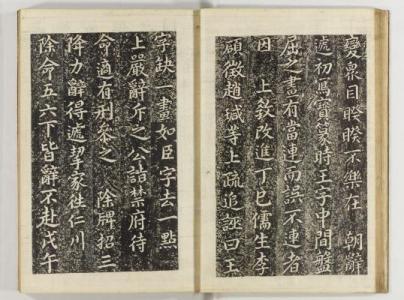 變衆目睽睽不樂在 朝辭
遞初寫寶篆時王字中間盤
屈之畫有當連而誤不連者
因 上敎改進丁巳儒生李
頎徵趙堿等上疏追誣曰王
字缺一畫如臣字去一點
上嚴辭斥之公詣禁府待
命適有刑矣之 除牌招三
降力辭得遞挈家徃仁川
除命五六下皆辭不赴戊午